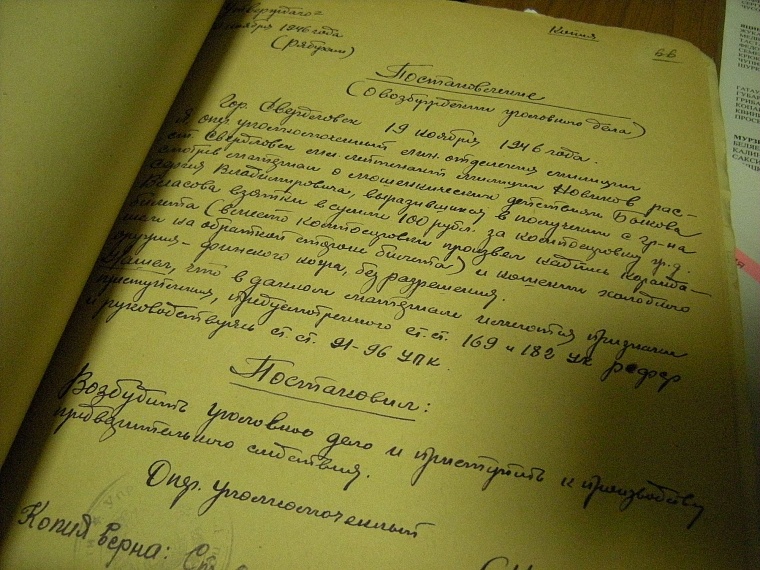 Утверждаю
ноября 1946 года
(Рябухин)
Копия
66
Постановление
(О возбуждении уголовного дела)
Гор. Свердловск 19 ноября 1946 года.
Я опер уполномоченный лин. отделения милиции
ст. Свердловск лейтенант милиции Новиков рас-
смотрев материал о мошеннических действиях Бонова
Сергея Владимировича, выразившихся в получении с гр-на
Власова взятки в сумме 100 рубл. за компосировку ж.д.
билета (вместо компосировки произвел надпись каранда-
шом на обратной стороне билета) и ношении холодного
оружия - финского ножа, без разрешения.
Нашел, что в данном материале имеются признаки
преступления, предусмотренного ст.ст. 169 и 182 УК РСФСР
и руководствуясь ст.ст. 91-96 УПК.
Постановил:
Возбудить уголовное дело и приступить к производству
предварительного следствия.
Опер. уполномоченный
Копия верна: